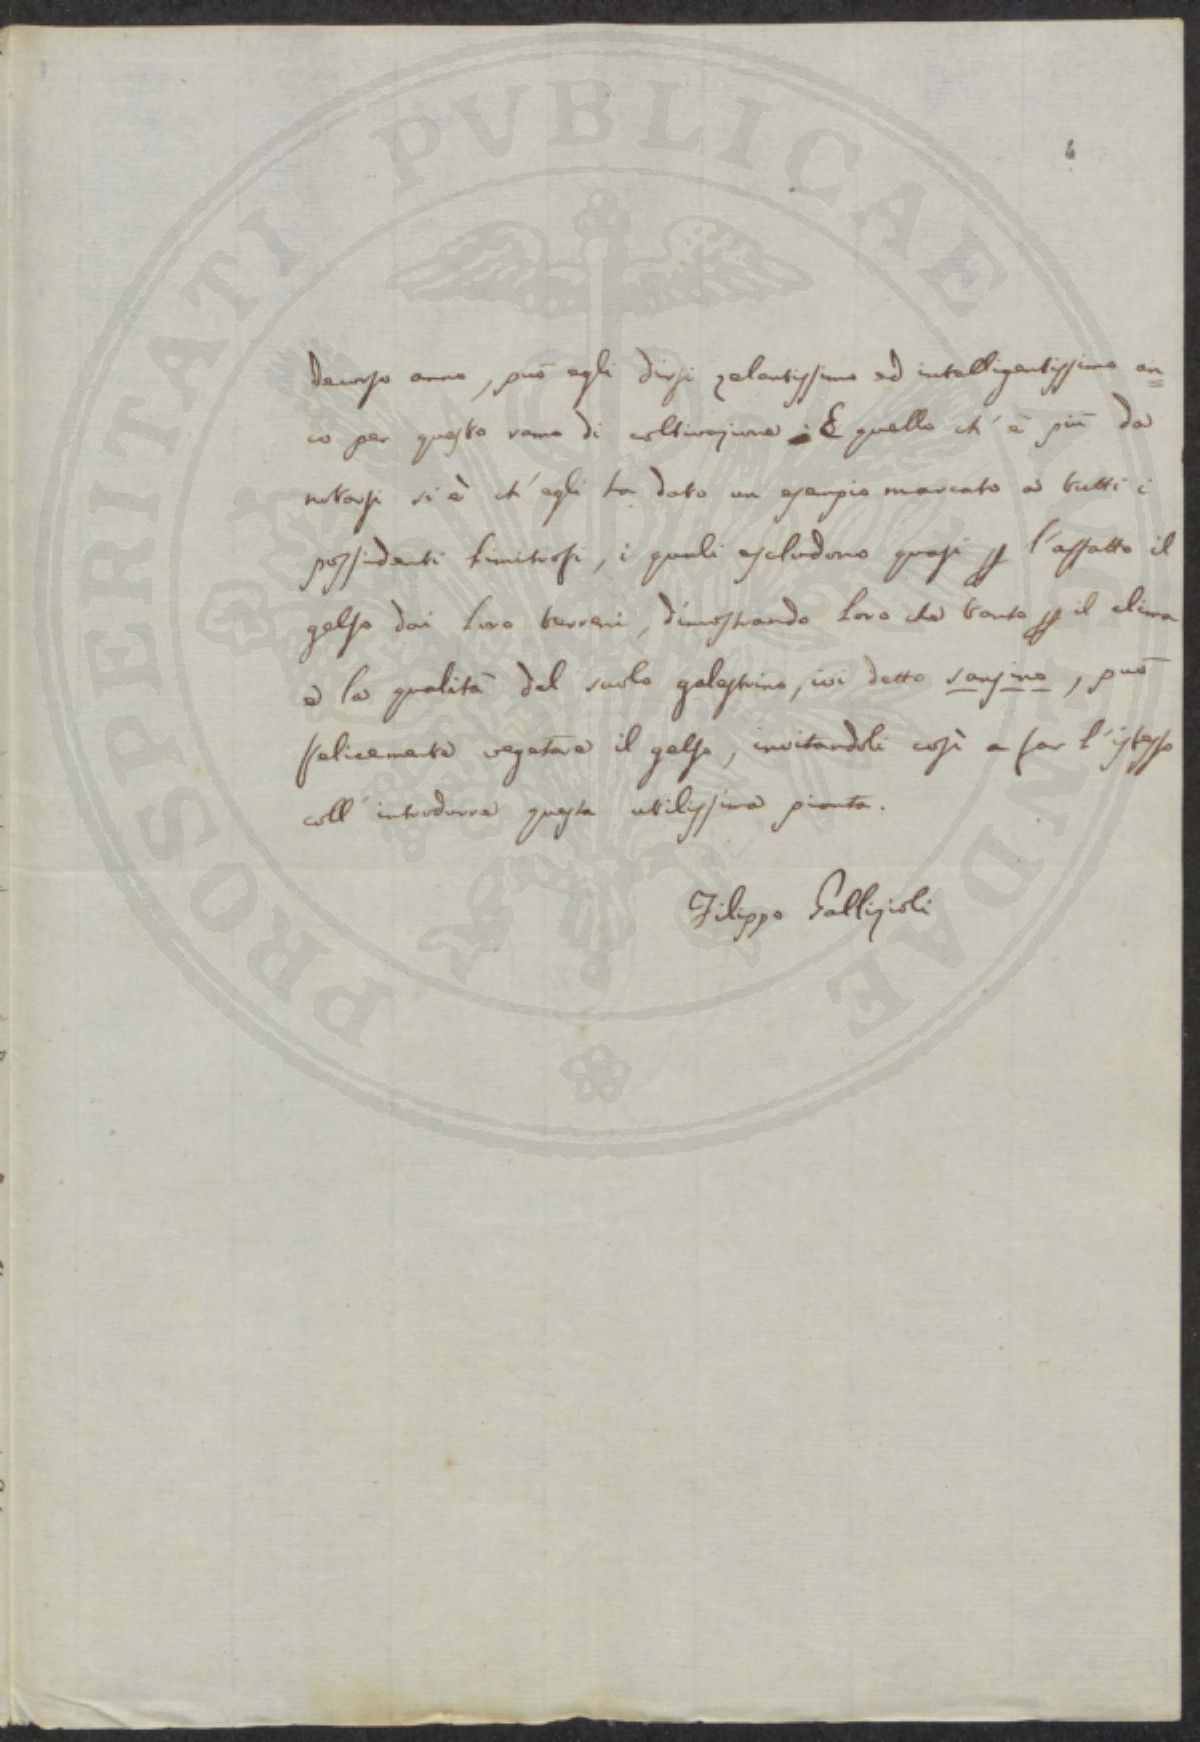 4
decorso anno, può egli dirsi zelantissimo ed intelligentissimo an=
co per questo ramo di coltivazione. E quello ch'è più da
notarsi si è ch'egli ha dato un esempio marcato a tutti i
possidenti limitrofi, i quali escludono quasi p l'affatto il
gelso dai loro terreni, dimostrando loro che tanto p il clima
e la qualità del suolo galestrino, ivi detto sansino, può
felicemente vegetare il gelso, invitandoli così a far l'istesso
coll'introdurre questa utilissima pianta.
Filippo Gallizioli
PROSPERITATI PVBLICAE AVGENDAE